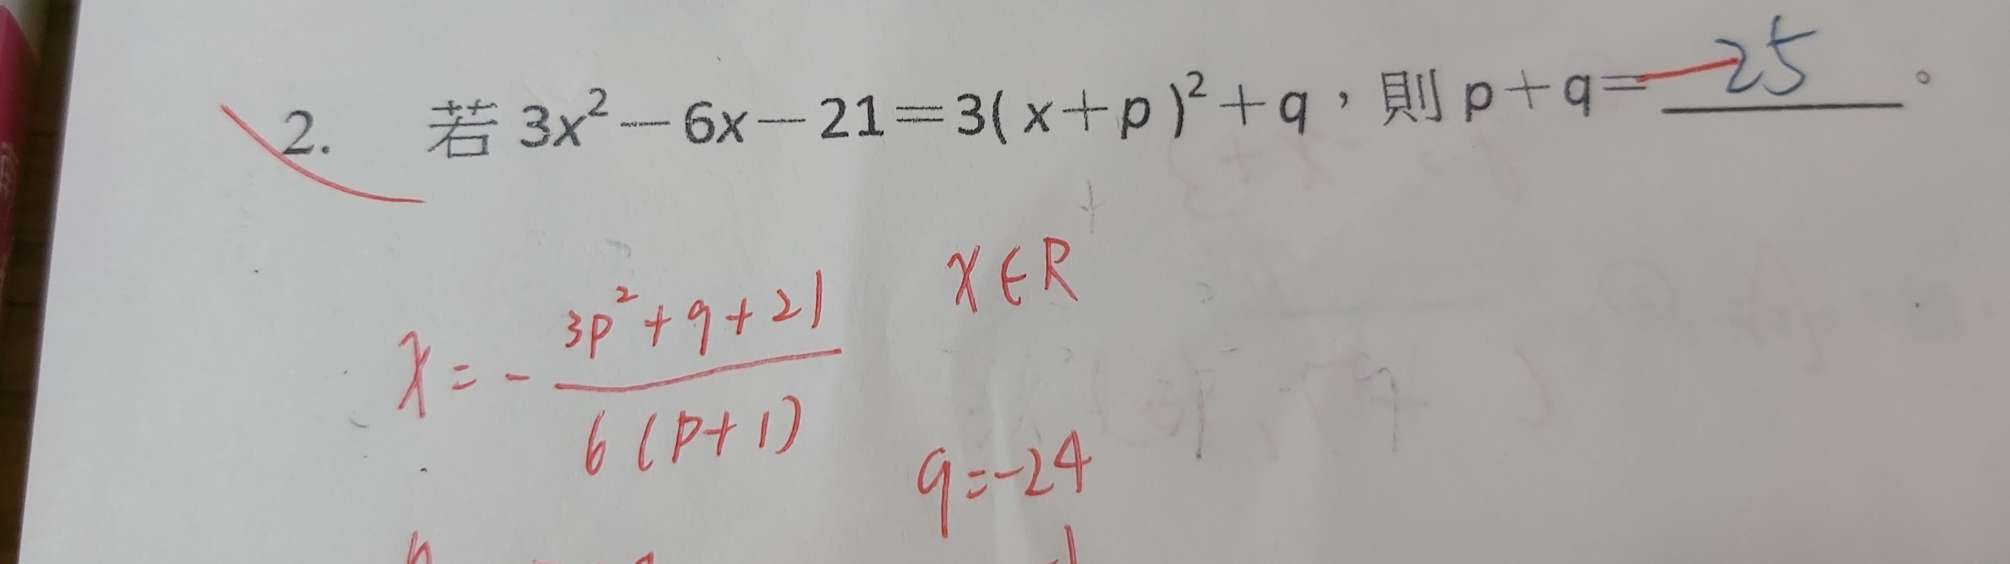 2. 若 3x²－6x－21＝3(x＋p)²＋q，則 p＋q＝－25。
x = - \frac{3p²+q+21}{6(p+1)} x∈R
q=-24